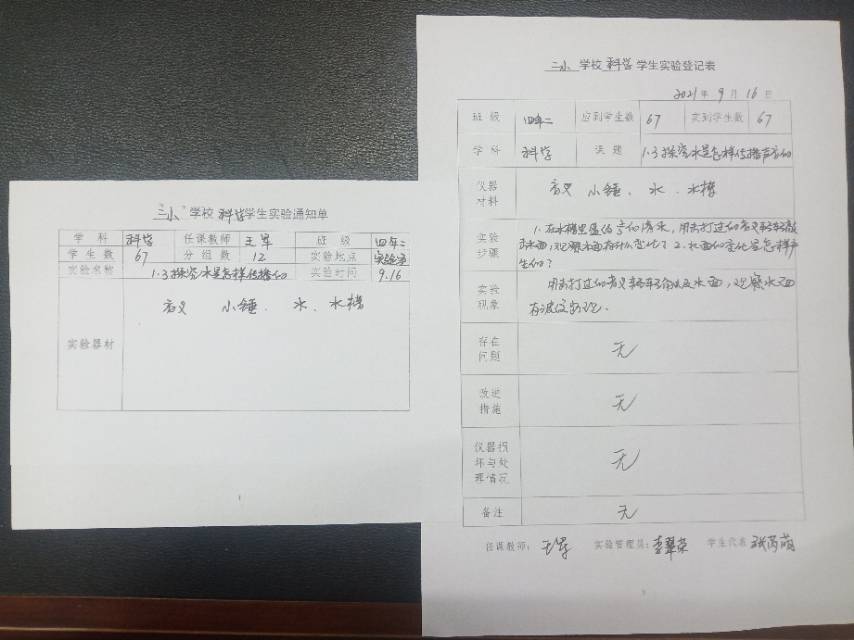 三小 学校 科学 学生实验通知单
学科 科学 任课教师 王军 班级 四年二
学生数 67 分组数 12 实验地点 实验室
实验名称 1.3探究水是怎样传播的 实验时间 9.16
实验器材 音叉 小锤、 水、水槽
1
二小 学校 科学 学生实验登记表
2021年 9月 16日
班级 四年二 应到学生数 67 实到学生数 67
学科 科学 课题 1.3探究水是怎样传播声音的
仪器
材料
音叉 小锤、水、水槽
实验
步骤
1.在水槽里盛的清水,用击打过的音叉轻轻
水面,观察水面有什么变化?2.水面的变化是怎样产
生的?
实验
现象
用击打过的音叉轻轻触及水面,观察水面
有波纹出现。
存在
问题
无
改进
措施
无
仪器损
坏与处
理情况
无
备注 无
任课教师: 王军 实验管理员: 李翠荣 学生代表 张芮萌